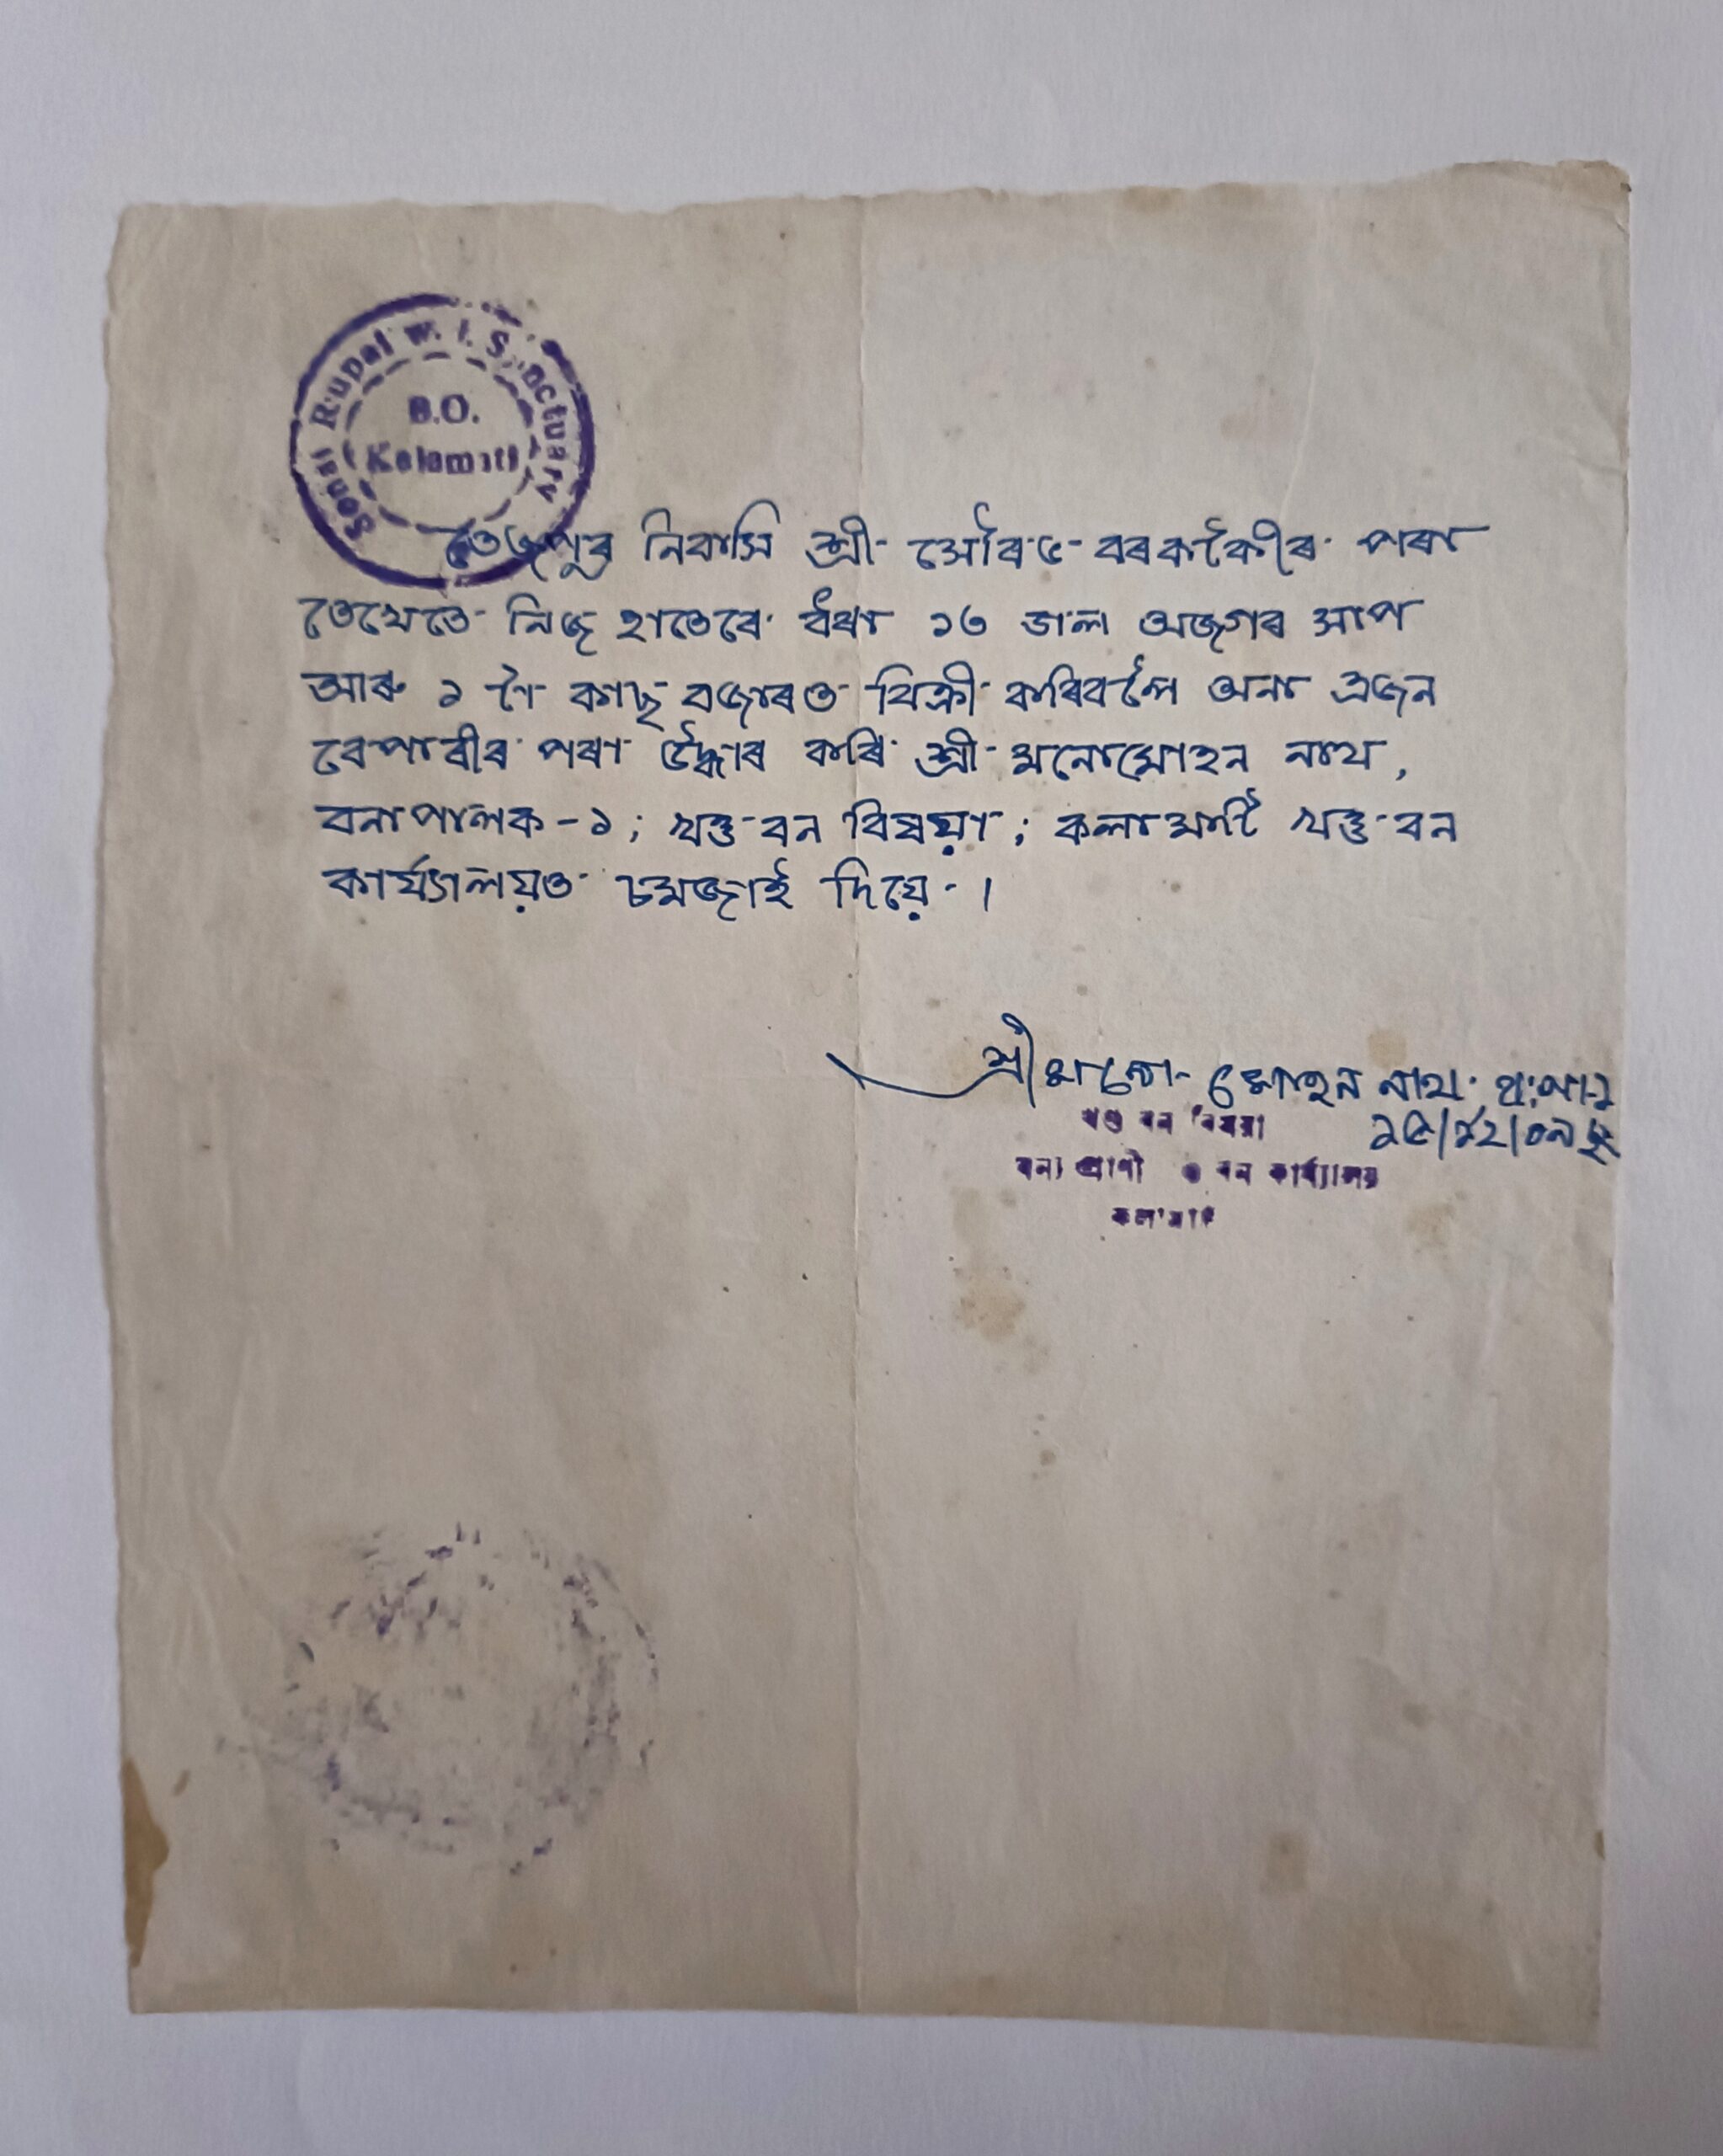 Sonai Rupai W. L. Sanctuary
B.O.
Kalamati
তেজপুৰ নিবাসি শ্ৰী সৌৰভ বৰকাকৈীৰ পৰা
তেখেতে নিজ হাতেৰে ধৰা ১৩ ডাল অজগৰ সাপ
আৰু ১ টা কাছ বজাৰত বিক্ৰী কৰিবলৈ অনা এজন
বেপাৰীৰ পৰা উদ্ধাৰ কৰি শ্ৰী মনোমোহন নাথ,
বনাপালক-১; খণ্ড বন বিষয়া; কলামাটি খণ্ড বন
কাৰ্য্যালয়ত চমজাই দিয়ে।
শ্ৰী মনো মোহন নাথ
খণ্ড বন বিষয়া
বন্য প্ৰাণী বন কাৰ্য্যালয়
কলামাটি